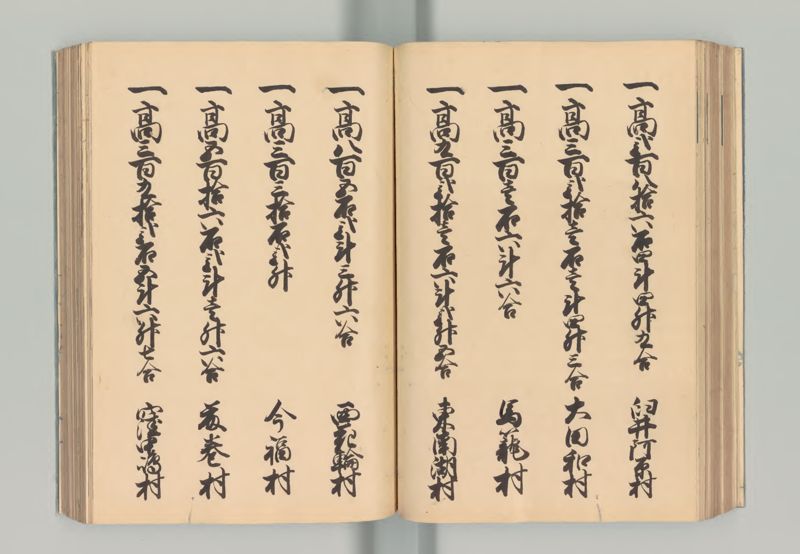 一高弐百八拾六石四斗四升九合 臼井阿原村
一高三百弐拾壱石壱斗四升三合 大田和村
一高三百壱石六斗六合 馬籠村
一高九百弐拾壱石六斗弐升五合 東南湖村
一高八百五石弐斗三升六合 西花輪村
一高三百三拾石弐升 今福村
一高五百拾六石弐斗壱升六合 藤巻村
一高三百九拾弐石五斗六升七合 窪津嶋村